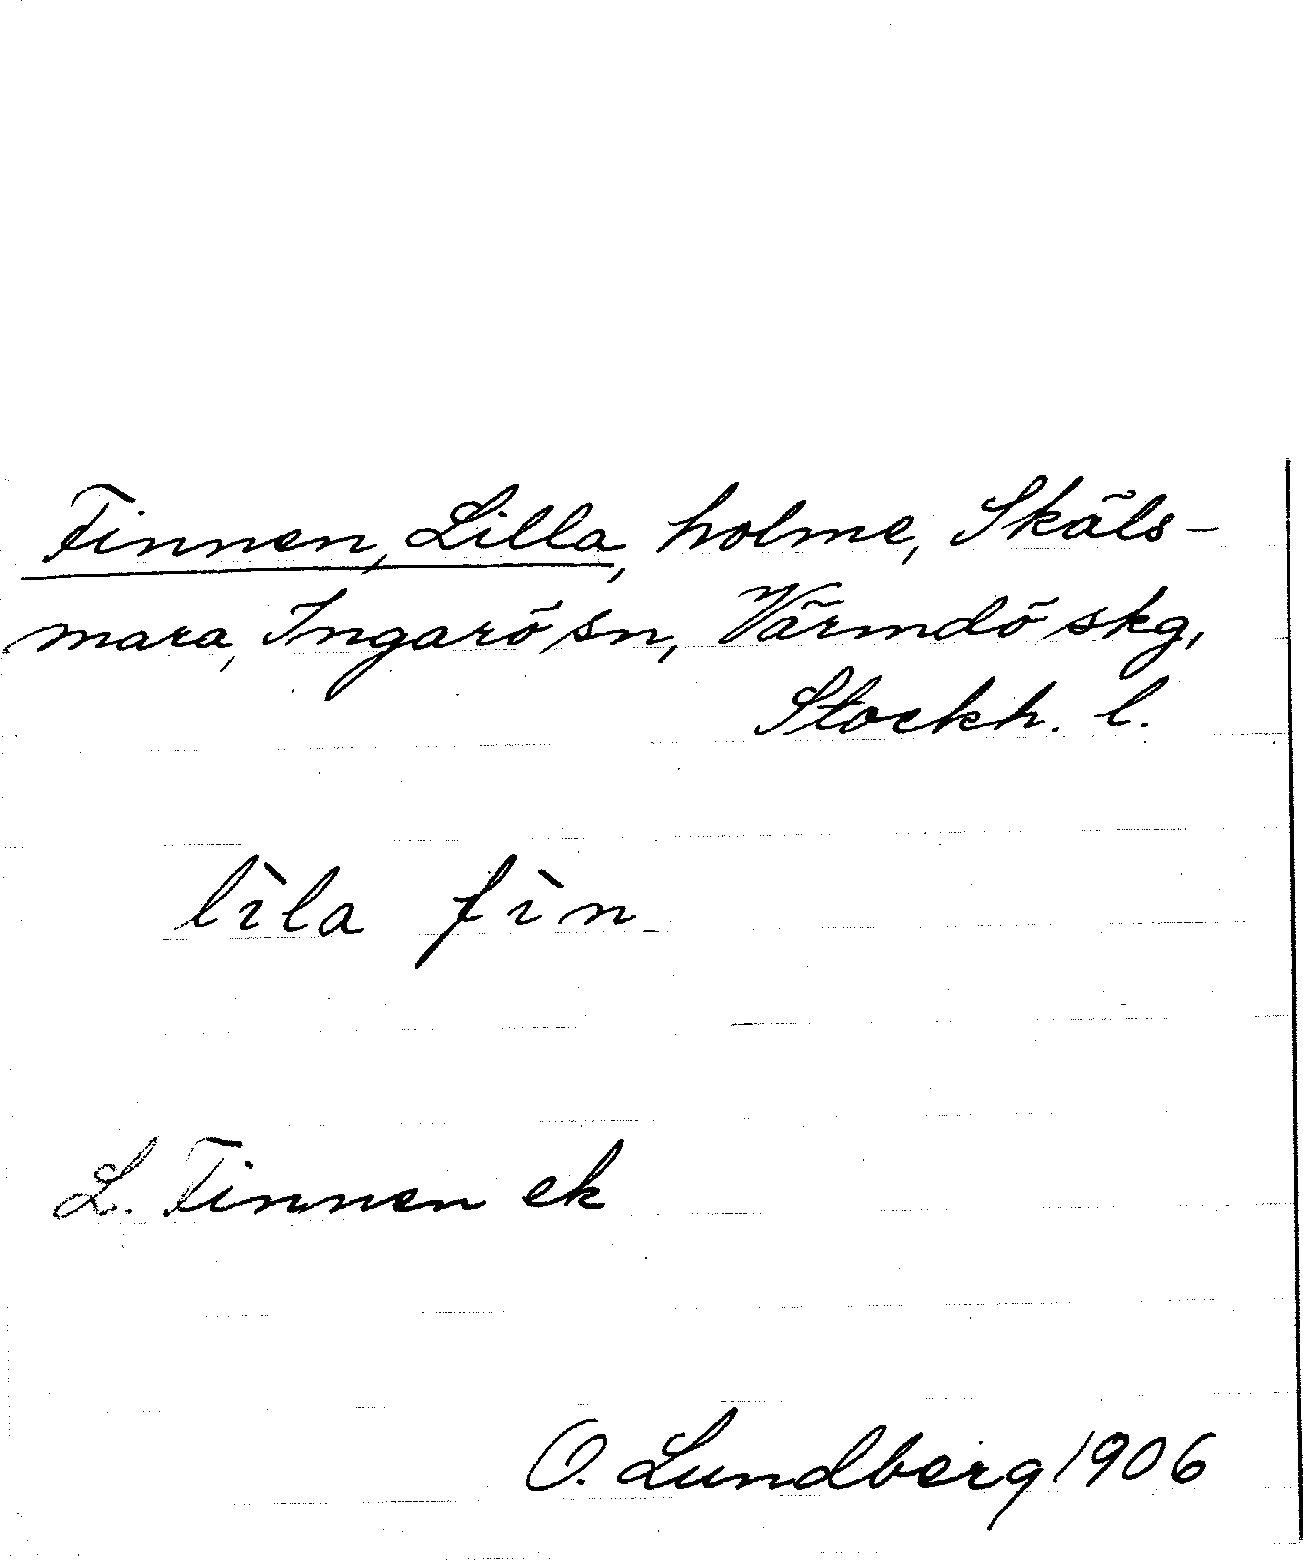 Finnen, Lilla, holme, Skäls-
mara, Ingarö sn, Värmdö skg,
Stockh. l.
lìla fìn
L. Finnen ek
O. Lundberg 1906